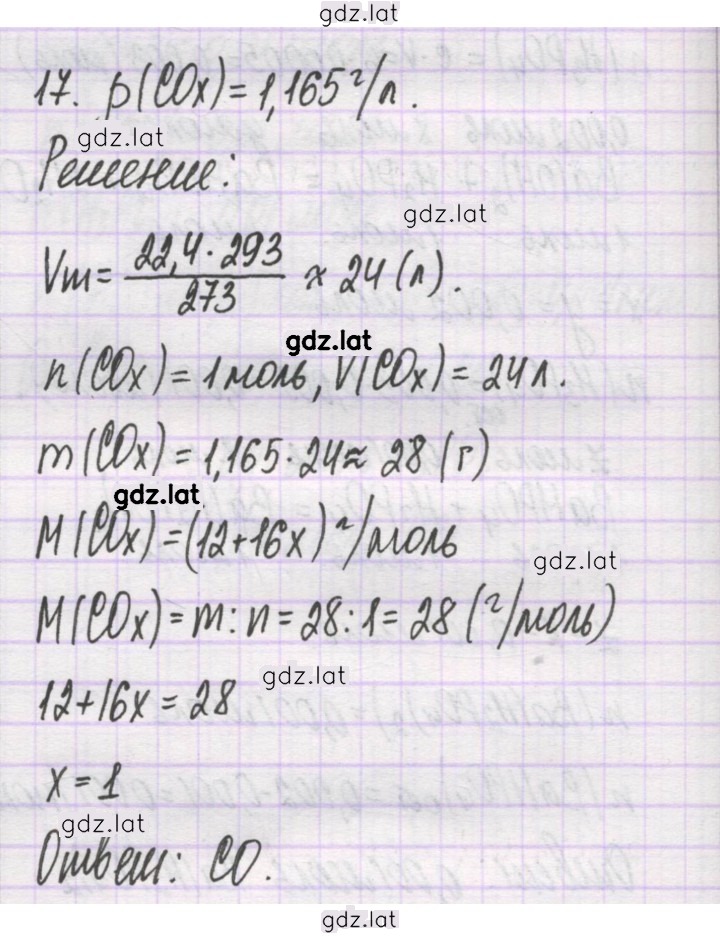 gdz.lat
17. ρ(COx) = 1,165 г/л.
gdz.lat
Решение:
gdz.lat
Vm = 22,4 · 293 / 273 ≈ 24 (л).
gdz.lat
n(COx) = 1 моль, V(COx) = 24 л.
m(COx) = 1,165 · 24 ≈ 28 (г)
gdz.lat
M(COx) = (12+16x) г/моль
gdz.lat
M(COx) = m : n = 28 : 1 = 28 (г/моль)
gdz.lat
12+16x = 28
x = 1
gdz.lat
Ответ: CO.
gdz.lat